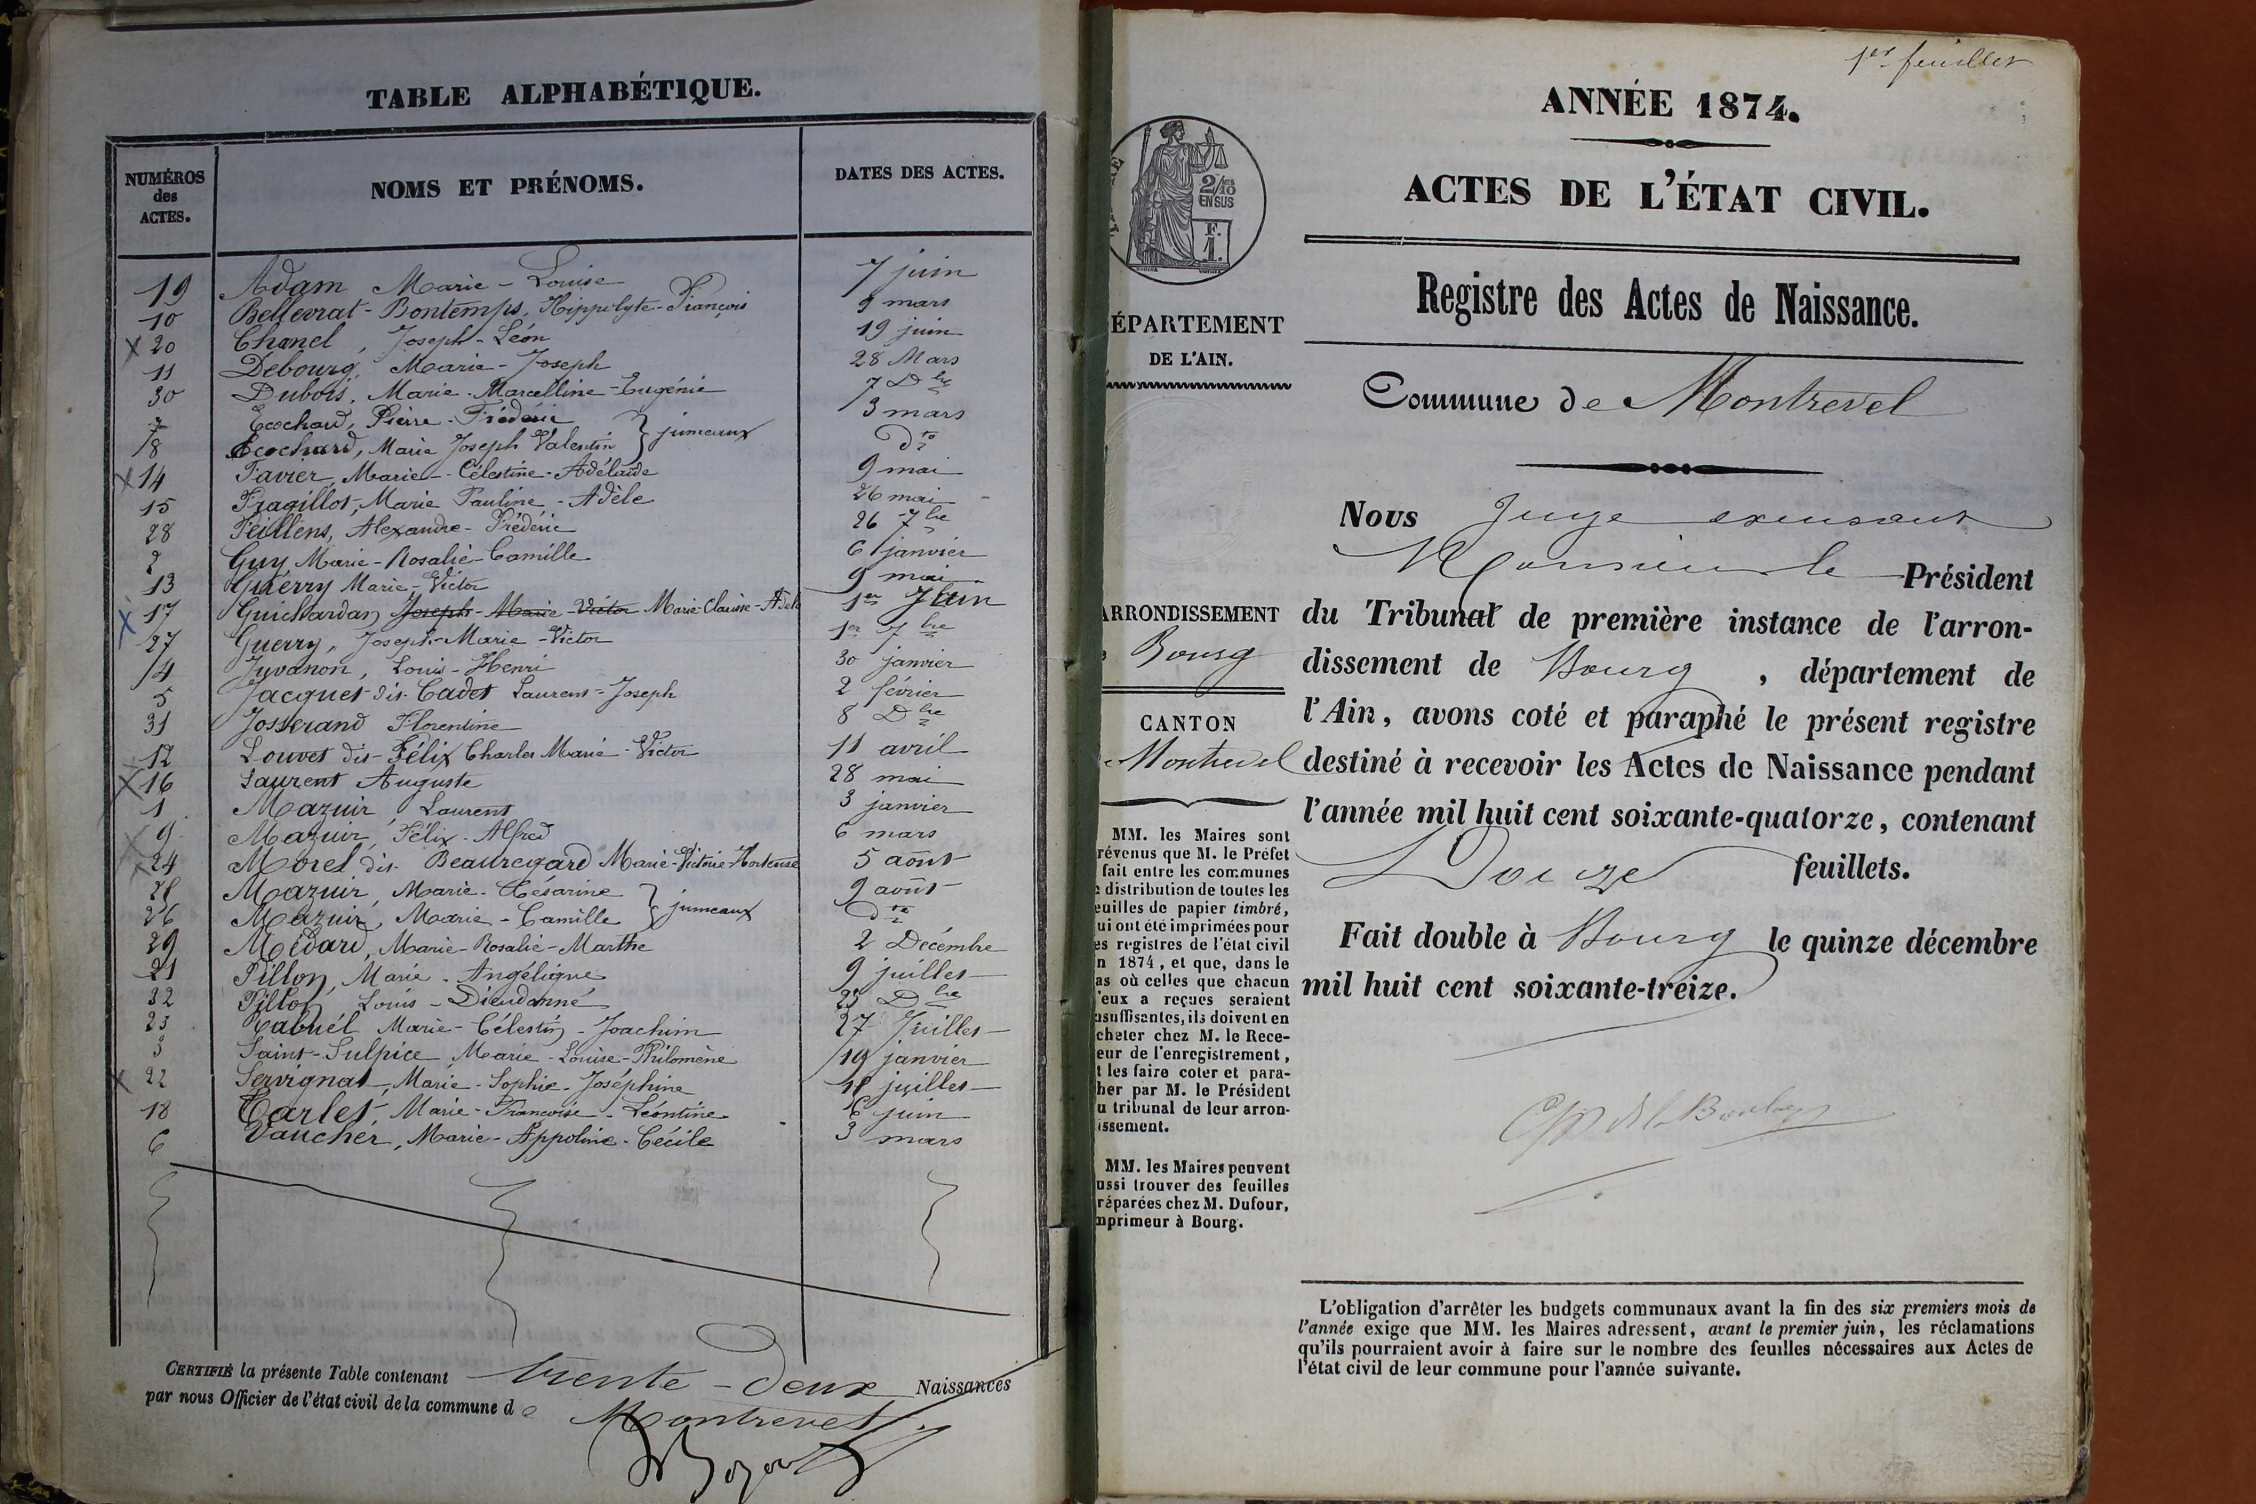 TABLE ALPHABÉTIQUE.
NUMÉROS
des
ACTES.
NOMS ET PRÉNOMS.
DATES DES ACTES.
19 Adam Marie-Louise 7 juin
10 Bellevrat-Bontemps, Hippolyte-François 9 mars
20 Chanel, Joseph-Léon 19 juin
11 Debourg, Marie-Joseph 28 Mars
30 Dubois, Marie-Marcelline-Eugénie 7 Dbre
7 Ecochard, Pierre-Frédéric 3 mars
jumeaux
8 Ecochard, Marie Joseph Valentin dto
14 Favier, Marie-Célestine-Adélaïde 9 mai
15 Fragillot, Marie Pauline-Adèle 26 mai
28 Feillens, Alexandre-Frédéric 26 7bre
2 Guy Marie-Rosalie-Camille 6 janvier
13 Guérry Marie-Victor 9 mai
17 Guichardan Joseph-Marie-Victor Marie Claisse-Adele 1er Juin
27 Guerry, Joseph-Marie-Victor 1er 7bre
4 Juvanon, Louis-Henri 30 janvier
5 Jacquet dit Cadet Laurent-Joseph 2 février
31 Josserand Florentine 8 Dbre
12 Louvet dit Félix Charles Marie-Victor 11 avril
16 Laurent Auguste 28 mai
1 Mazuir, Laurent 3 janvier
9 Mazuir, Félix-Alfred 6 mars
24 Morel dit Beauregard Marie-Victorie-Hortense 5 août
25 Mazuir, Marie-Césarine 9 août
jumeaux
26 Mazuir, Marie-Camille dto
29 Médard, Marie-Rosalie-Marthe 2 Décembre
21 Pillon, Marie-Angélique 9 juillet
32 Pillon, Louis-Dieudonné Dbre
23 Rabuél Marie-Célestin-Joachim 27 Juillet
3 Saint-Sulpice Marie-Louise-Philomène 19 janvier
22 Servignat, Marie-Sophie-Joséphine juillet
18 Carlet, Marie-Françoise-Léontine 6 juin
6 Vaucher, Marie-Appoline-Cécile 3 mars
CERTIFIÉ la présente Table contenant trente-deux Naissances
par nous Officier de l'état civil de la commune de Montrevel
1er feuillet
ANNÉE 1874.
ACTES DE L'ÉTAT CIVIL.
2/10
EN SUS
F.
1.
Registre des Actes de Naissance.
ÉPARTEMENT
DE L'AIN.
Commune de Montrevel
Nous Juge excusant
Monsieur le Président
du Tribunal de première instance de l'arron-
dissement de Bourg, département de
l'Ain, avons coté et paraphé le présent registre
destiné à recevoir les Actes de Naissance pendant
l'année mil huit cent soixante-quatorze, contenant
Douze feuillets.
Fait double à Bourg le quinze décembre
mil huit cent soixante-treize.
ARRONDISSEMENT
Bourg
CANTON
Montrevel
MM. les Maires sont
révenus que M. le Préfet
fait entre les communes
distribution de toutes les
euilles de papier timbré,
ui ont été imprimées pour
es registres de l'état civil
n 1874, et que, dans le
as où celles que chacun
'eux a reçues seraient
nsuffisantes, ils doivent en
cheter chez M. le Rece-
eur de l'enregistrement,
t les faire coter et para-
her par M. le Président
u tribunal de leur arron-
issement.
MM. les Maires peuvent
ussi trouver des feuilles
réparées chez M. Dufour,
mprimeur à Bourg.
L'obligation d'arrêter les budgets communaux avant la fin des six premiers mois de
l'année exige que MM. les Maires adressent, avant le premier juin, les réclamations
qu'ils pourraient avoir à faire sur le nombre des feuilles nécessaires aux Actes de
l'état civil de leur commune pour l'année suivante.